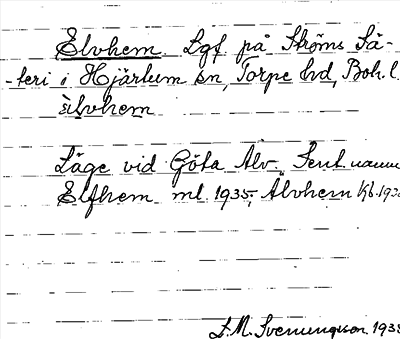 Elvhem. Lgf. på Ströms Sä-
-teri i Hjärtum sn, Torpe hd, Boh. l.
älvhem
Läge vid Göta Älv. Sent namn
Elfhem ml. 1935, Älvhem Kb. 193
S.M. Svenungsson 1935